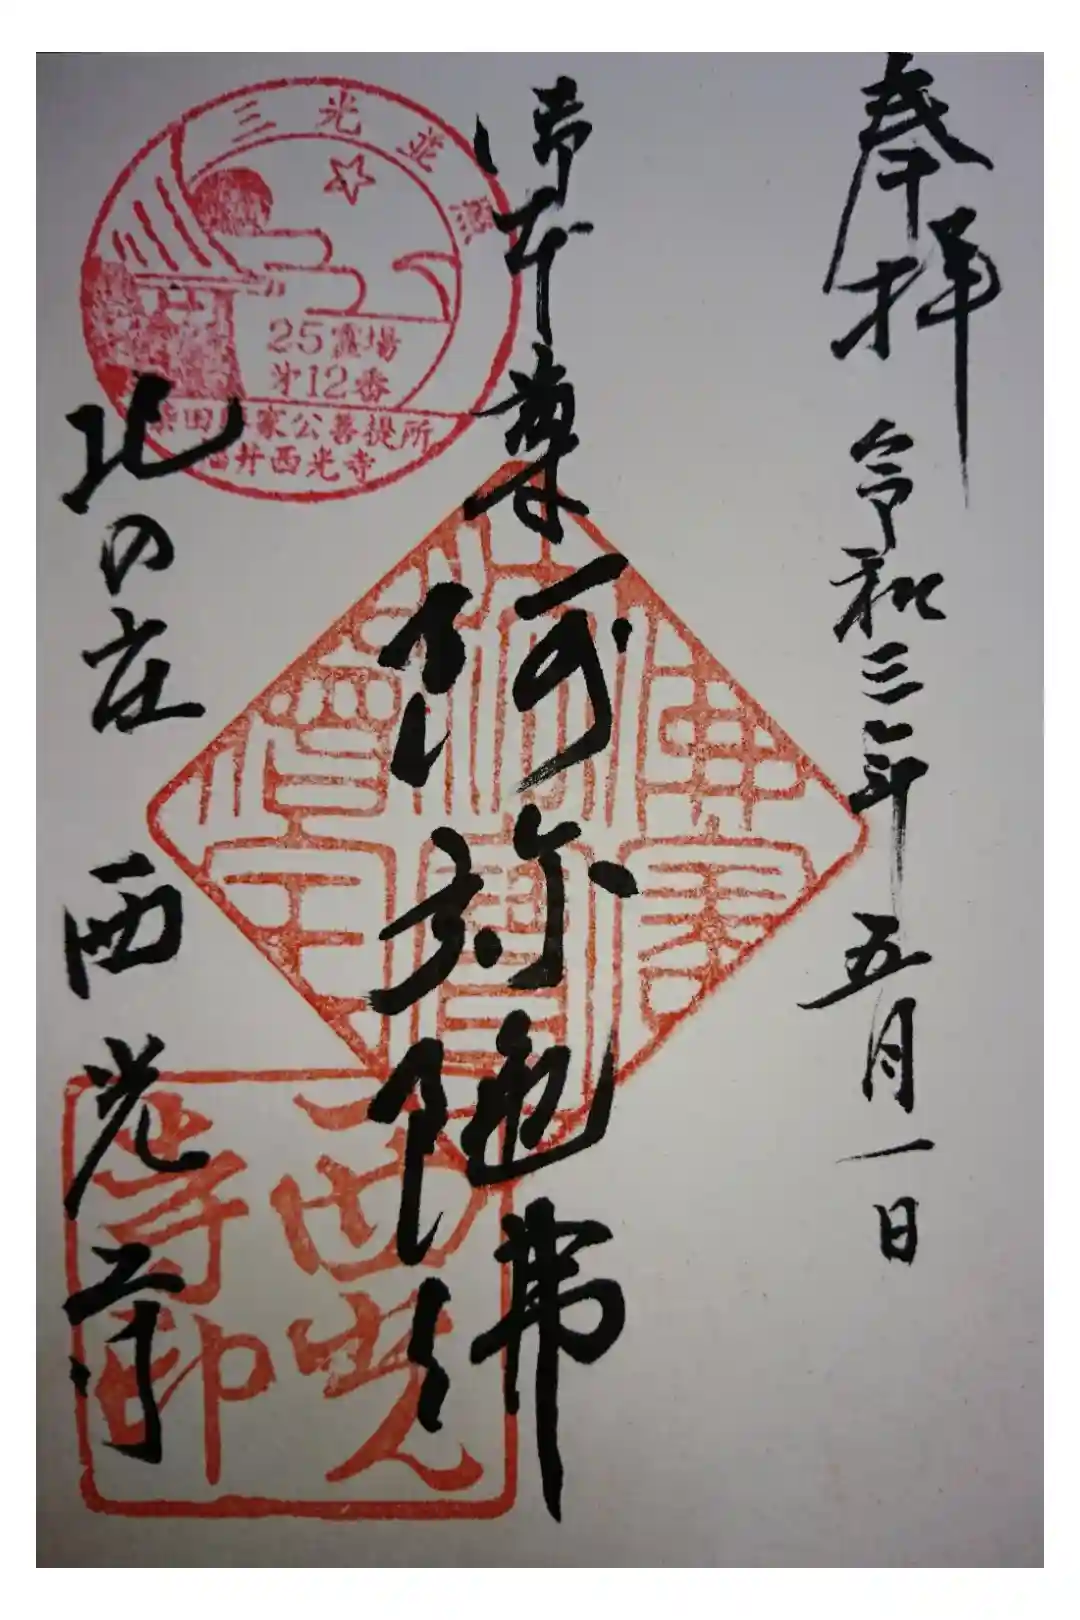 奉拝
令和三年五月一日
御本尊
阿弥陀佛
北の庄 西光寺
三光並
25靈場
第12番
柴田勝家公菩提所
福井西光寺
佛法僧寶
西光寺印